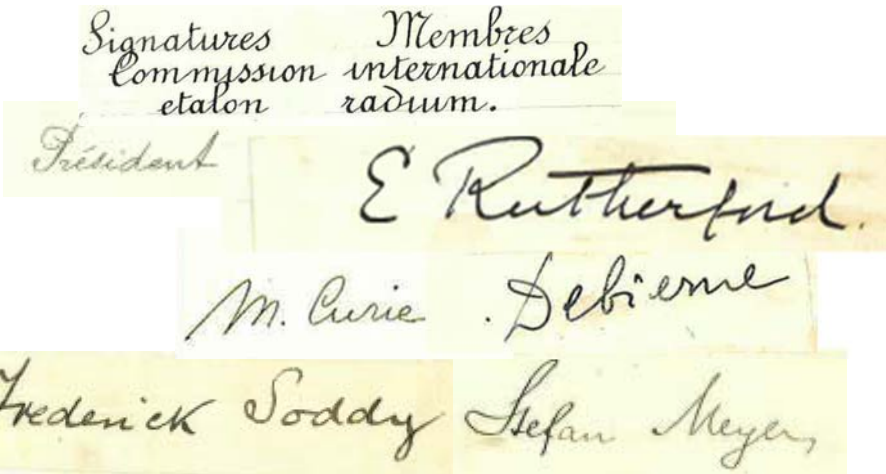 Signatures Membres
Commission internationale
etalon radium.
Président
E Rutherford.
M. Curie . Debierne
Frederick Soddy Stefan Meyer,